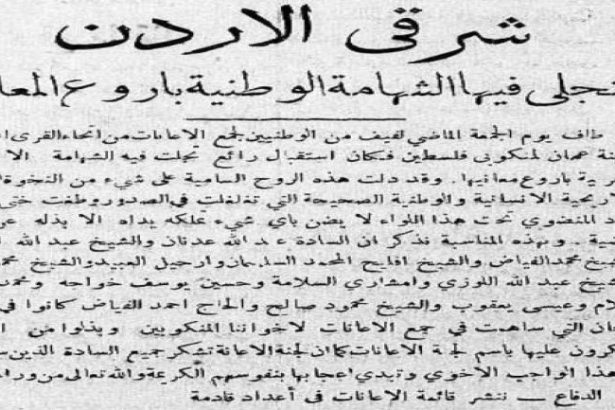 شرقي الاردن
تتجلى فيها الشهامة الوطنية باروع المعا
طاف يوم الجمعة الماضي لفيف من الوطنيين لجمع الاعانات من انحاء القرى
عمان لمنكوبي فلسطين فكان استقبال رائع تجلت فيه الشهامة الا
ية باروع معانيها. وقد دلت هذه الروح السامية على شيء من النخوة
الاريحية الانسانية والوطنية الصحيحة التي تغلغلت في الصدور وطغت حتى
المنضوي تحت هذا اللواء لا يضن باي شيء تملكه يداه الا بذله
وبهذه المناسبة نذكر ان السادة عبد الله عدنان والشيخ عبد الله
محمد الفياض والشيخ افليح المحمد السليمان وارحيل العبيد والشيخ
شيخ عبد الله اللوزي وامشاري السلامة وحسين يوسف خواجه ومحمد
وعيسى يعقوب والشيخ محمود صالح والحاج احمد الفياض كانوا في
التي ساهمت في جمع الاعانات لاخواننا المنكوبين وبذلوا من
كرون عليها باسم لجنة الاعانات كما ان لجنة الاعانة تشكر جميع السادة الذين
هذا الواجب الاخوي وتبدي اعجابها بنفوسهم الكريمة والله تعالى من ورا
الدفاع — ننشر قائمة الاعانات في أعداد قادمة